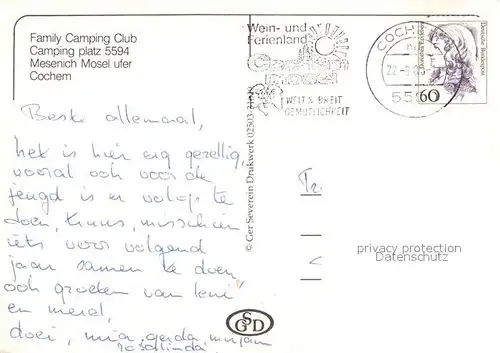 Family Camping Club
Camping platz 5594
Mesenich Mosel ufer
Cochem
Wein- und
Ferienland
Cochem
Mosel
WELT & BREIT
GEMÜTLICHKEIT
COCHEM
22-8
55
Deutsche Bundespost
60
Beste allemaal,
het is hier erg gezellig,
vooral ook voor de
jeugd is er volop te
doen, knus, misschien
iets voor volgend
jaar samen te doen
ook groeten van leni
en merel,
doei, mia, gerda, mirjam
rosalinda
© Ger Severein Drukwerk 02503-
privacy protection
Datenschutz
GSD